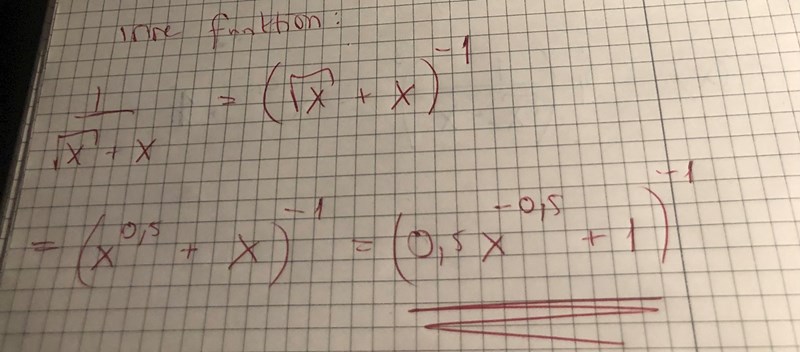 inre funktion:
1/(√x + x) = (√x + x)⁻¹
= (x^0,5 + x)⁻¹ = (0,5x^-0,5 + 1)⁻¹